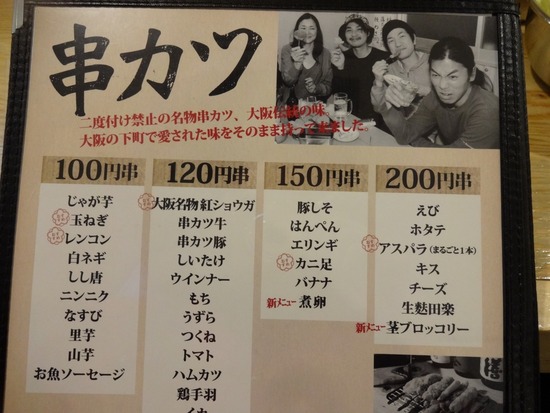 串カツ
二度付け禁止の名物串カツ、大阪伝統の味
大阪の下町で愛された味をそのまま持って来ました。
100円串
じゃが芋
玉ねぎ
レンコン
白ネギ
しし唐
ニンニク
なすび
里芋
山芋
お魚ソーセージ
120円串
大阪名物 紅ショウガ
串カツ牛
串カツ豚
しいたけ
ウインナー
もち
うずら
つくね
トマト
ハムカツ
鶏手羽
イカ
150円串
豚しそ
はんぺん
エリンギ
カニ足
バナナ
新メニュー 煮卵
200円串
えび
ホタテ
アスパラ(まるごと1本)
キス
チーズ
生麩田楽
新メニュー 茎ブロッコリー